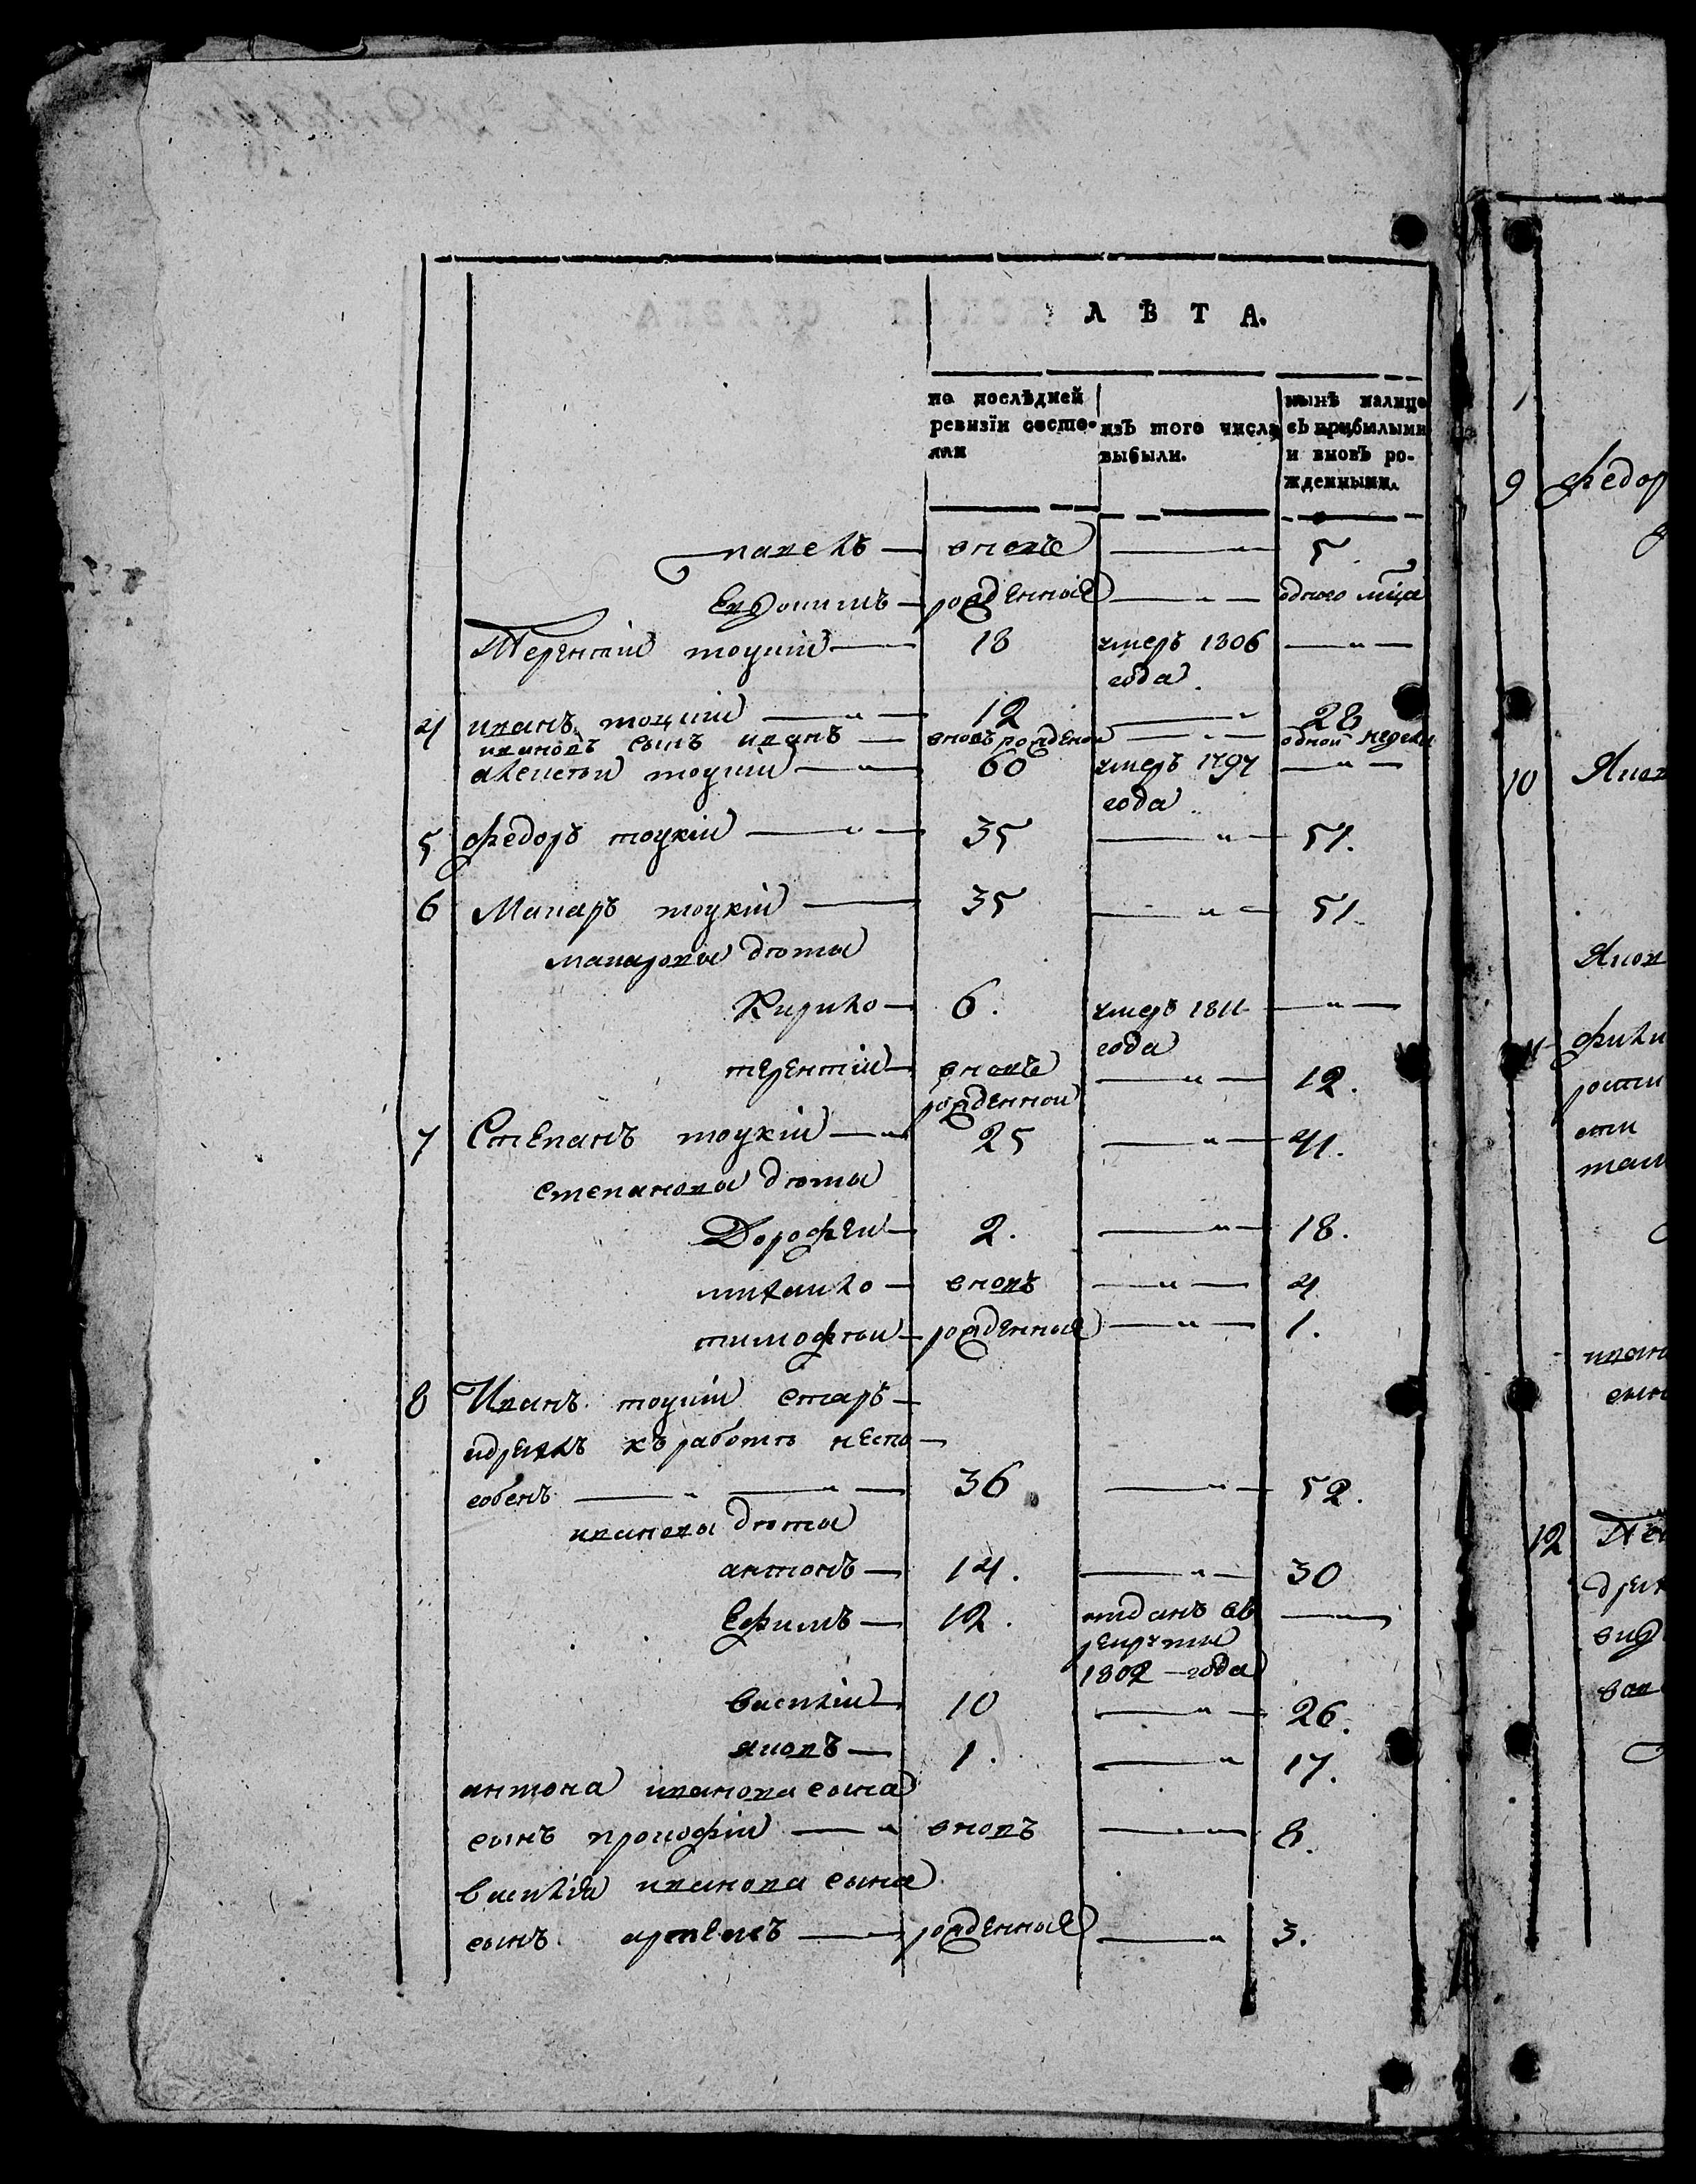 ЛѢТА.
по послѣдней ревизіи состояли
изъ того числа выбыли.
нынѣ налицо съ прибылыми и вновь рожденными.
павелъ — вновь — " — 5
рожденные — " — одного мца
Терентий тоцкий — 18 умеръ 1806 — " —
года
4 иванъ тоцкий — " — 12 — " 28
ивановъ сынъ иванъ — вновь рожденои — " — одной недели
алексѣй тоцкий — " — 60 умеръ 1797 — " —
года
5 федоръ тоцкій — " — 35 — " — 51.
6 Макаръ тоцкій — 35 — " — 51
макарова дѣти
Кирило — 6. умеръ 1811 — " —
года
терентий — вновь — " — 12.
рожденнои
7 Степанъ тоцкій — " 25 — " — 41.
степанова дѣти
Дорофеи — 2. — " — 18.
михаило — вновь — " — 4
тимофѣи — рожденные — " — 1.
8 Иванъ тоцкий старъ —
идряхлъ къ работѣ неспо —
собенъ — " — " — 36 — " — 52.
иванова дѣти
антонъ — 14. — " — 30
Ефимъ — 12. отданъ въ —
рекруты
1802 — года
василий — 10 — " — 26.
яковъ — 1. — " 17.
антона иванова сына
сынъ прокофій — " вновъ — " — 8.
василія иванова сына
сынъ артемъ — рожденные — " 3.
9 Федор
10 Яков
Яков
11 фили
сти
иван
сын
12